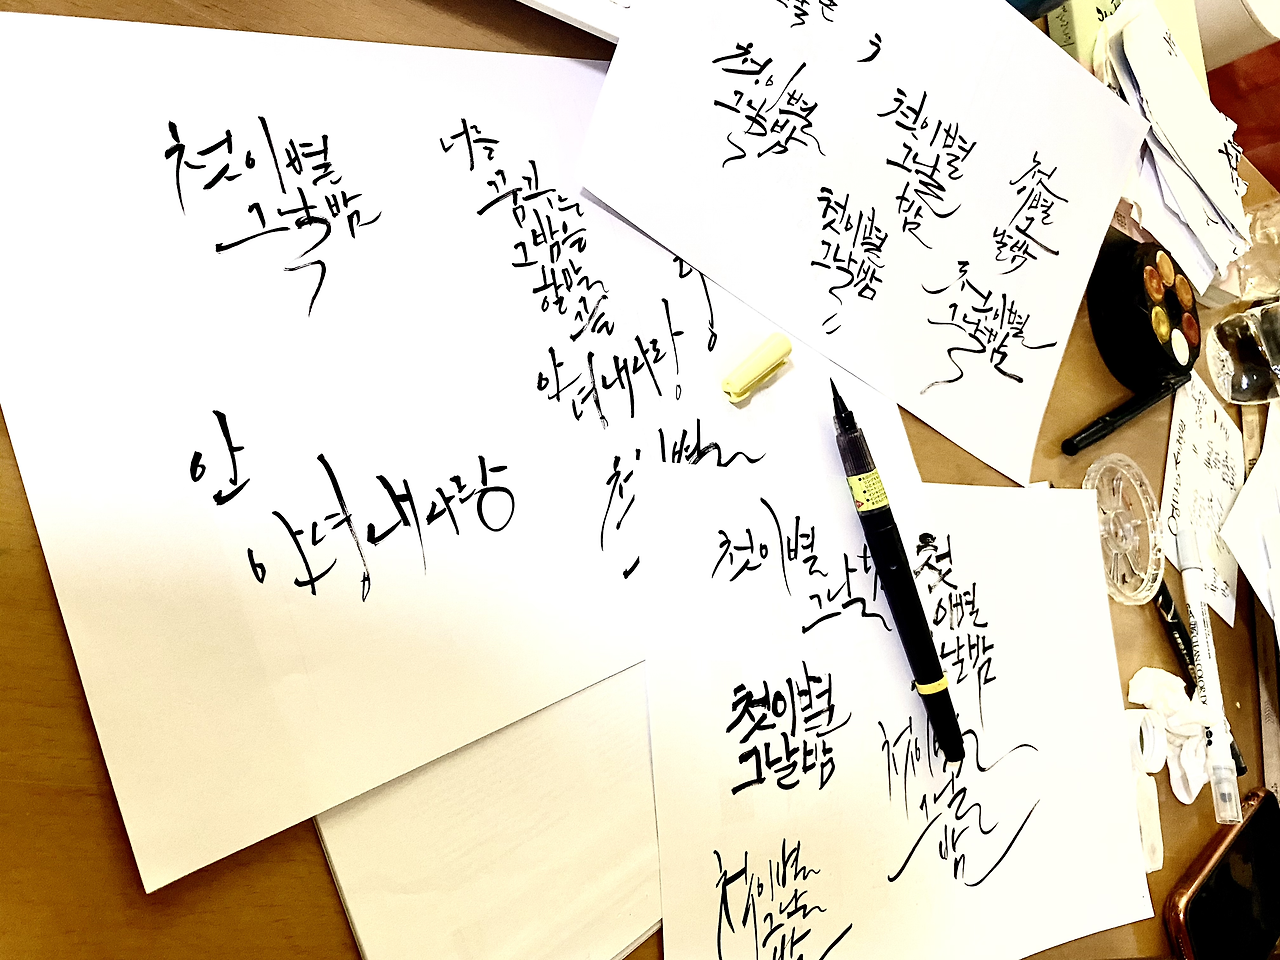 첫이별
그날밤
너를
꿈꾸는
그밤을
안녕내사랑
안
안녕내사랑
첫이별
첫이별
그날밤
첫이별
그날
밤
첫이별
그날밤
첫
이별
그
날밤
첫이별
그날밤
첫이별
그날
첫
이별
날밤
첫이별
그날밤
첫이별
그날
밤
첫이별
그날
밤